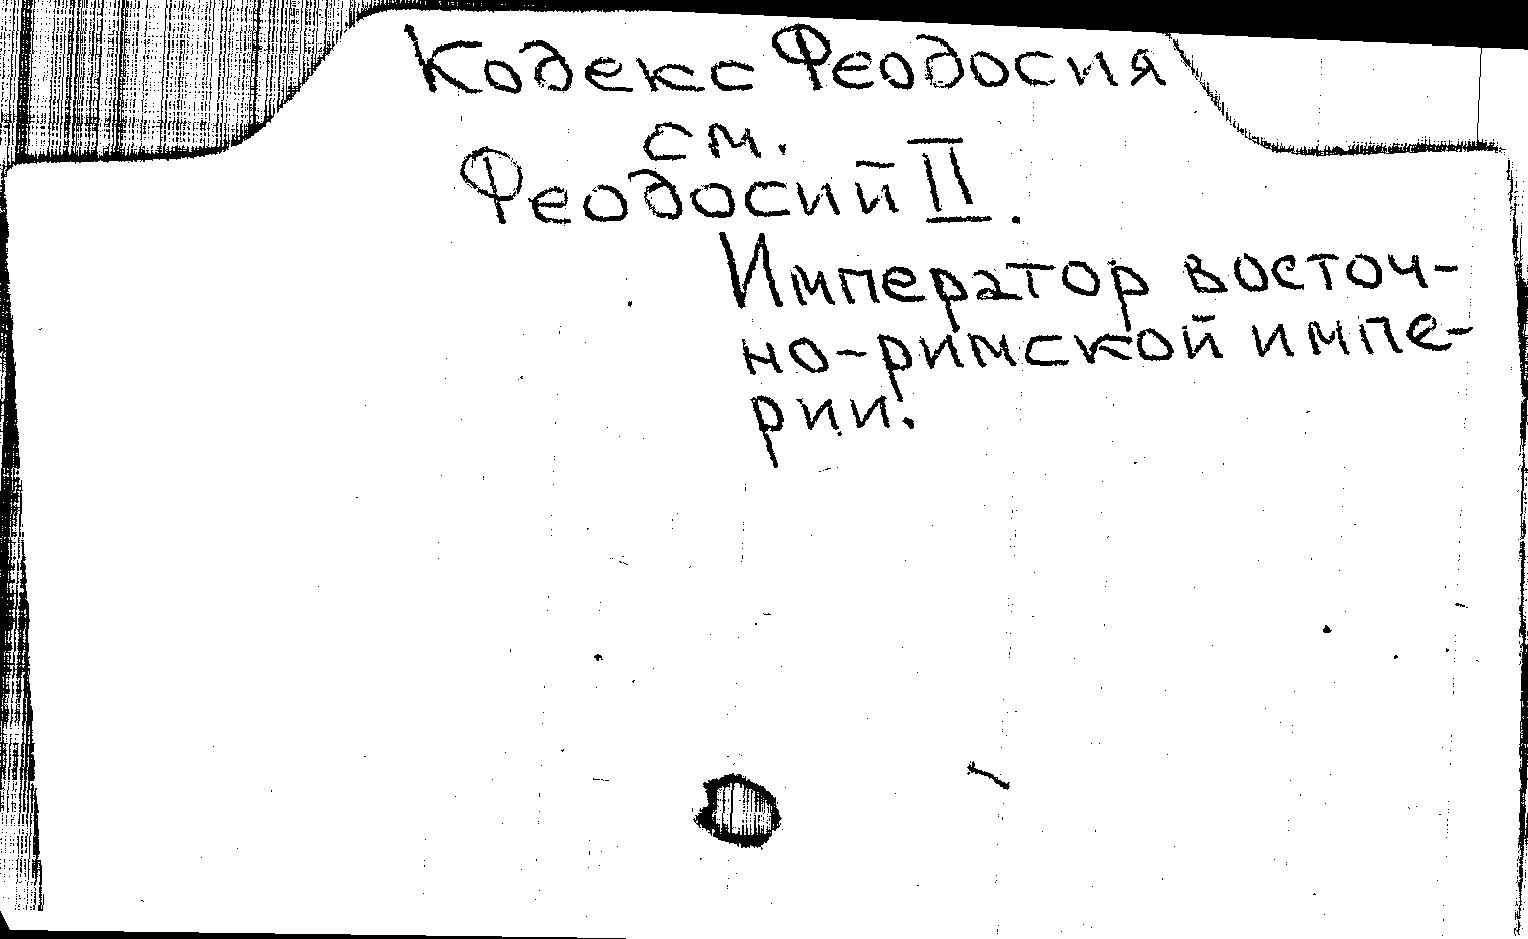 Кодекс Феодосия
см.
Феодосий II.
Император восточ-
но-римской импе-
рии.